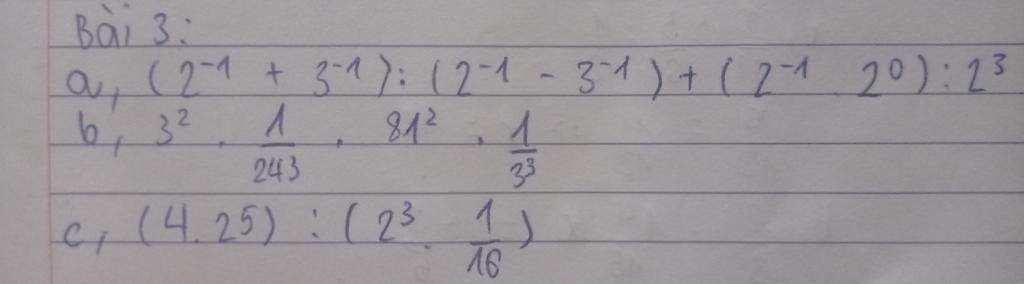 Bài 3:
a, (2⁻¹ + 3⁻¹) : (2⁻¹ - 3⁻¹) + (2⁻¹ 2⁰) : 2³
b, 3² . 1/243 . 81² . 1/3³
c, (4.25) : (2³ . 1/16)